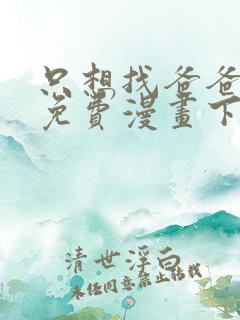 只想找爸爸
免费漫畫下
清世浮白
未经同意禁止转载